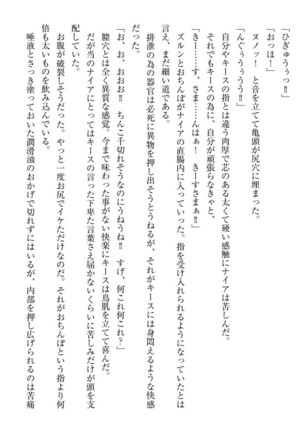 「ひぎゅうぅっ‼」
「おっほ！」
ヌノッ！　と音を立てて亀頭が尻穴に埋まった。
自分やキースの指とは違う肉厚で芯のある太くて硬い感触にナイアは苦しんだ。
それでもキースの為に、自分が頑張らなきゃと、
「んぐぅうぅうう‼」
「きーす、さま……んはぁ！　きーすさまぁ‼」
ズルンとおちんぽがナイアの直腸内に入っていった。指を受け入れられるようになっていたとはいえ、まだ細い道である。
排泄の為の器官は必死に異物を押し出そうとうねるが、それがキースには身悶えるような快感だった。
「お、お、おおお‼　ちんこ千切れそうなのにうねうね‼　すげ、何これ何これ？」
膣穴とは全く異質な感覚。今まで味わった事がない快楽にキースは鳥肌を立てて喜んだ。
だが当のナイアにとってはキースの言った下卑た言葉さえ届かないくらいに苦しみだけが頭を支配していた。
お腹が破裂しそうだった。やっと一度お尻でイケただけなのだ。それがおちんぽという指より何倍も太いものを飲み込んでいる。
唾液とさっき塗っておいた潤滑油のおかげで切れずにはいるが、内部を押し広げられるのは苦痛